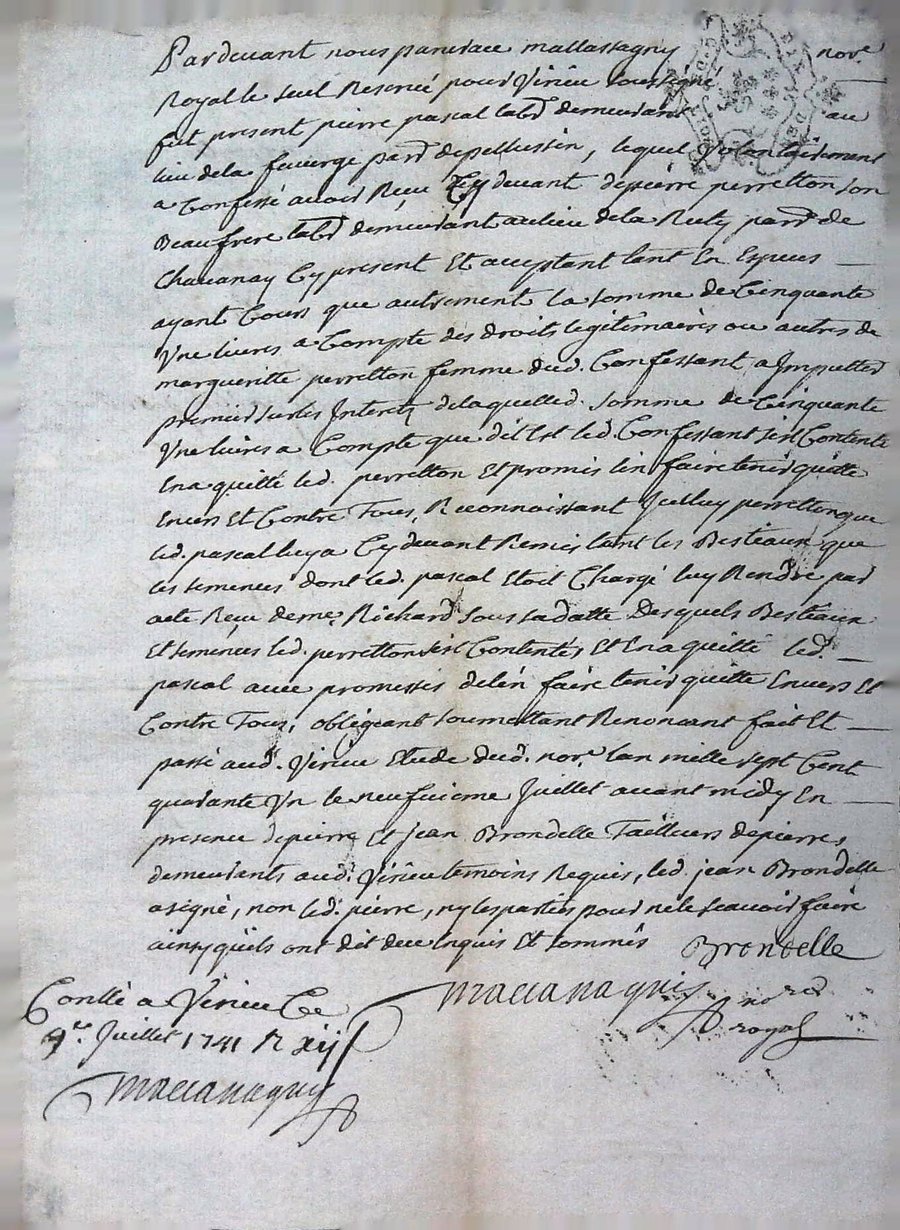 Pardevant nous pancrace mallassagny nore.
Royal le seul Reservé pour Virieu soussigné
fut present pierre pascal labr. demeurant au
lieu de la feuverge parr. de pellussin, lequel volontairement
a Confessé avoir Reçu Cy devant de pierre perretton son
Beaufrere labr. demeurant au lieu de la Ruty parr. de
Chavanay Cy present Et acceptant tant En Especes
ayant Cours que autrement la somme de Cinquante
Une livres a Compte des droits legitimaires ou autres de
margueritte perretton femme dud. Confessant a Imputter
premier sur les Interetz de laquelled. somme de Cinquante
Une livres a Compte que dit Est led. Confessant s'est Contenté
En a quitté led. perretton Et promis l'en faire tenir quitte
Envers Et Contre Tous, Reconnaissant Icelluy perretton que
led. pascal luy a Cy devant Remis tant les Bestiaux que
les semences dont led. pascal Etoit Chargé luy Rendre par
acte Reçu de me. Richard sous sa datte Desquels Bestiaux
Et semences led. perretton s'est Contentés Et En a quitté led.
pascal avec promesses de l'en faire tenir quitte Envers Et
Contre Tous, obligeant soumettant Renoncant fait Et
passé aud. Virieu Etude dud. nore. l'an mille sept Cent
quarante Un le neufvieme Juillet avant midy En
presence de pierre Et jean Brondelle Tailleurs de pierres,
demeurants aud. Virieu temoins Requis, led. jean Brondelle
a signé, non led. pierre, ny les parties pour ne le scavoir faire
ainsy qu'ils ont dit de ce Enquis Et sommés Brondelle
nore.
royal
Conllé a Virieu Ce
9me. Juillet 1741 R xij s